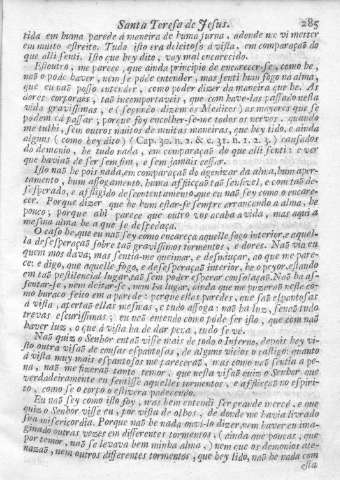 Santa Teresa de Jesus. 285
tida em huma parede á maneira de huma jurna, adonde me vi metter
em muito estreito. Tudo isto era deleitoso á vista, em comparaçaõ do
que alli senti. Isto que hey dito, vay mal encarecido.
Estoutro, me parece, que ainda principio de encarecer-se, como he,
naõ o póde haver, nem se póde entender, mas senti hum fogo na alma,
que eu naõ posso entender, como poder dizer da maneira que he. As
dores corporaes, taõ incomportaveis, que com have-las passado nesta
vida gravissimas, e (segundo dizem os Medicos) as mayores que se
podem cá passar; porque foy encolher-se-me todos os nervos, quando
me tulhi, sem outros muitos de muitas maneiras, que hey tido, e ainda
alguns (como hey dito) (Cap. 30. n. 2. & c. 31. n. 1. 2. 3.) causados
do demonio, he tudo nada, em comparaçaõ do que alli senti: e ver
que haviaõ de ser sem fim, e sem jamais cessar.
Isto naõ he pois nada, em comparaçaõ do agonizar da alma, hum aper-
tamento, hum affogamento, huma afflicçaõ taõ sensivel, e com taõ de-
sesperado, e affligido descontentamento, que eu naõ sey como o encare-
cer. Porque dizer que he hum estar-se sempre arrancando a alma, he
pouco; porque ahi parece que outro vos acaba a vida, mas aqui a
mesma alma he a que se despedaça.
O caso he, que eu naõ sey como encareça aquelle fogo interior, e aquel-
la desesperaçaõ sobre taõ gravissimos tormentos, e dores. Naõ via eu
quem nos dava, mas sentia-me queimar, e desmiuçar, ao que me pare-
ce, e digo, que aquelle fogo, e desesperaçaõ interior, he o peyor. estando
em taõ pestilencial lugar, taõ sem poder esperar consolaçaõ. Naõ ha as-
sentar-se, nem deitar-se, nem ha lugar, ainda que me puzeraõ neste co-
mo buraco feito em a parede: porque estas paredes, que saõ espantosas
á vista, apertaõ ellas mesmas, e tudo affoga: naõ ha luz, senaõ tudo
trevas escurissimas: eu naõ entendo como póde ser isto, que com naõ
haver luz, o que á vista ha de dar pena, tudo se vê.
Naõ quiz o Senhor entaõ visse mais de todo o Inferno, depois hey vi-
sto outra visaõ de cousas espantosas, de alguns vicios o castigo: quanto
á vista muy mais espantosas me pareceraõ, mas como naõ sentia a pe-
na, naõ me fizeraõ tanto temor, que nesta visaõ quiz o Senhor que
verdadeiramente eu sentisse aquelles tormentos, e afflicçaõ no espiri-
to, como se o corpo o estivera padecendo.
Eu naõ sey como isto foy, mas bem entendi ser grande mercê, e que
quiz o Senhor visse eu, por vista de olhos, de donde me havia livrado
sua misericordia. Porque naõ he nada ouvi-lo dizer, nem haver eu ima-
ginado outras vezes em differentes tormentos, (ainda que poucas, que
por temor, naõ se levava bem minha alma,) nem que os demonios ate-
nazaõ, nem outros differentes tormentos, que hey lido, naõ he nada com
esta